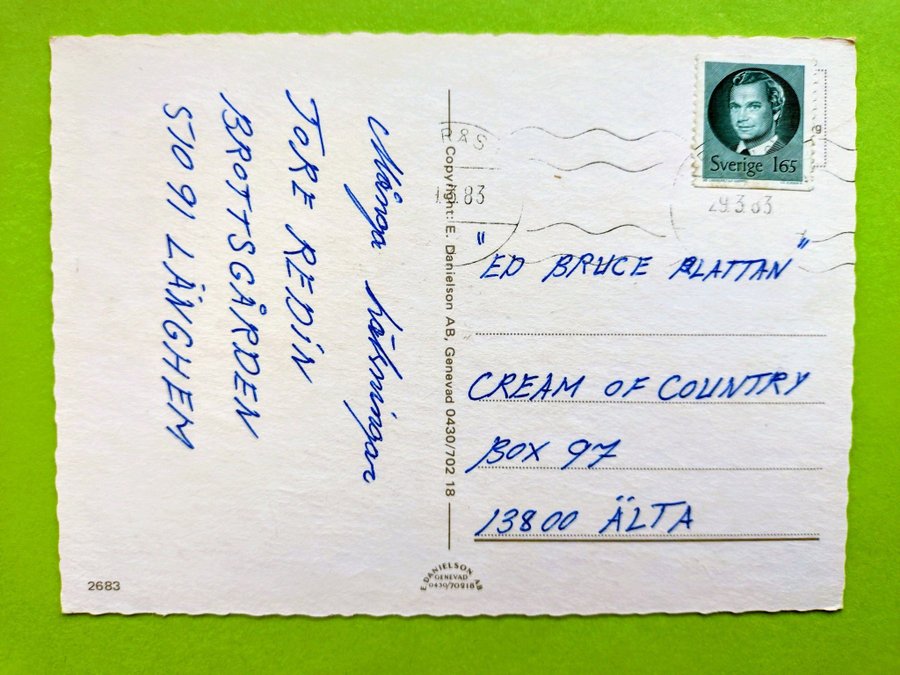 Många hälsningar
TORE REDIN
BROTTSGÅRDEN
510 91 LÄNGHEM
Copyright: E. Danielson AB, Genevad 0430/702 18
Sverige 165
29.3.83
83
"ED BRUCE PLATTAN"
CREAM OF COUNTRY
BOX 97
13800 ÄLTA
2683
E. DANIELSON AB
GENEVAD
0430/70218